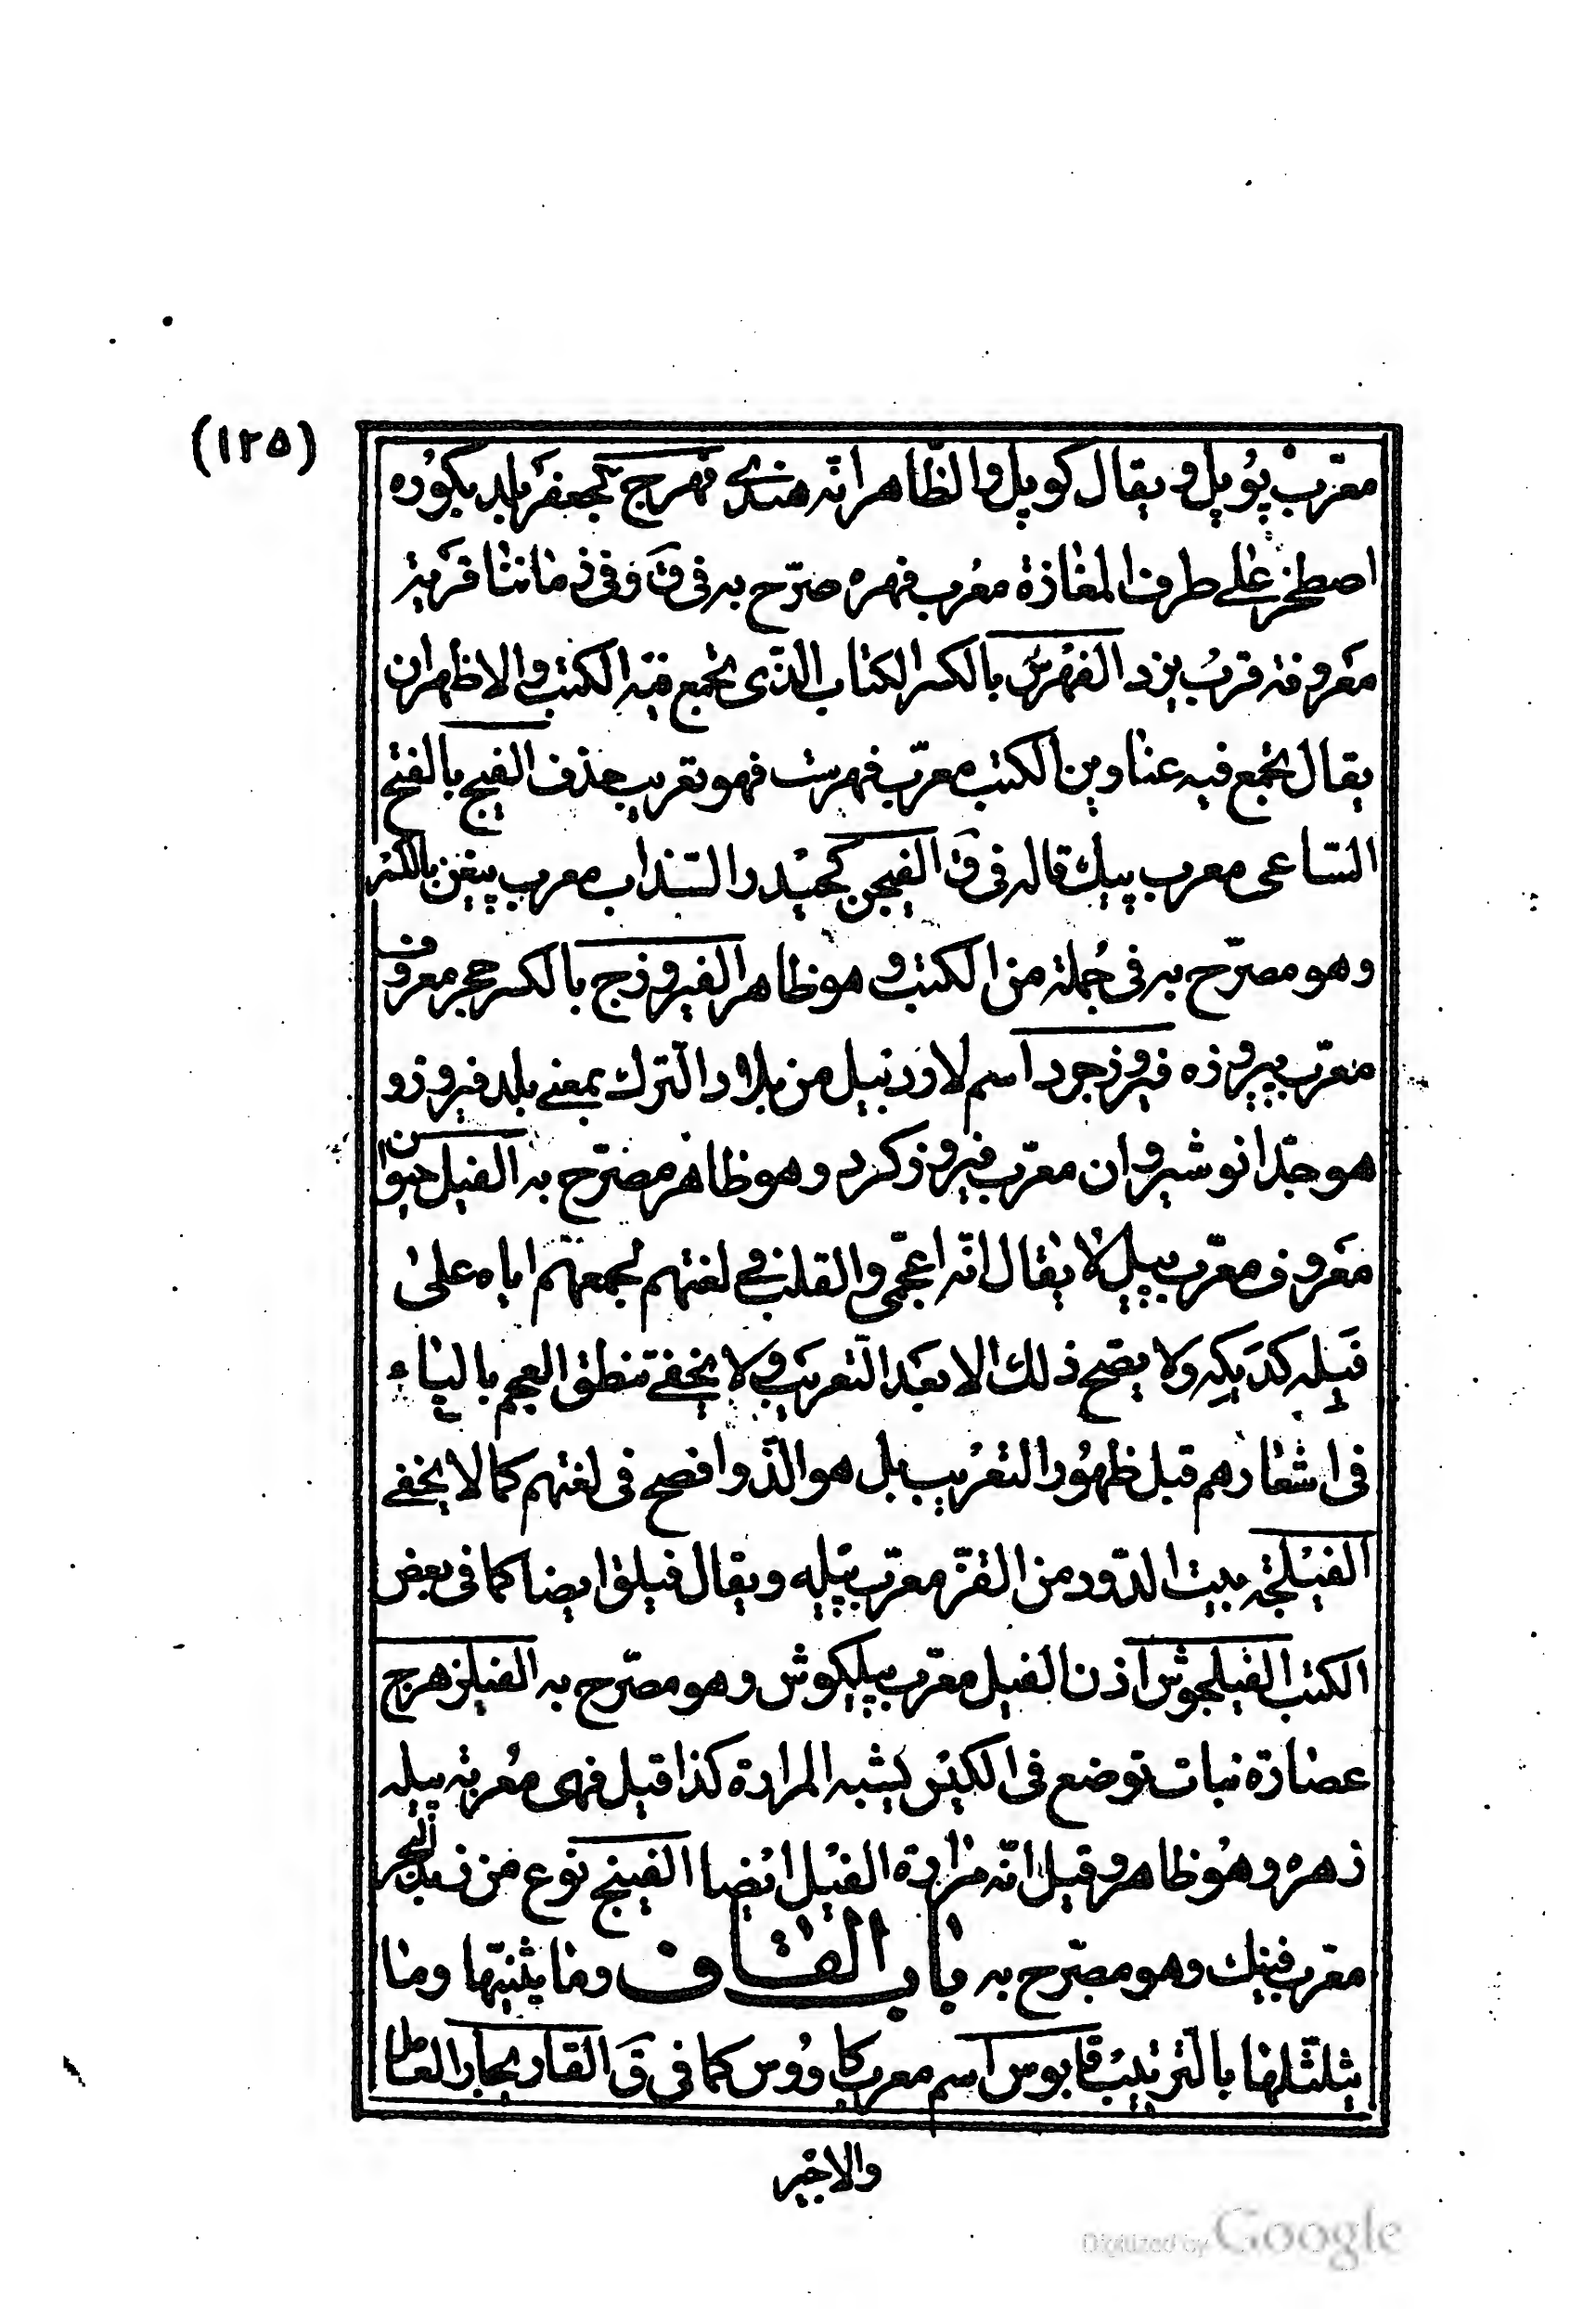 (١٢٥)
معرّب پُوپل و یقال کوپل والظّاهر انّه هندیّ فَهرَج کجعفر بلد بکُوره
اصطخر علی طرف المفازة معرب فهره صرّح به فی ق و فی زماننا قریة
معروفة قرب یزد الفهرس بالکسر الکتاب الذی یجمع فیه الکتب والاظهر ان
یقال یجمع فیه عناوین الکتب معرّب فهرست فهو تعریب حذف الفیج بالفتح
السّاعی معرب پیک قاله فی ق الفیجن کحیدر السّذاب معرب پیغن بالکسر
وهو مصرّح به فی جُملة من الکتب و هو ظاهر الفیروزج بالکسر حجر معروف
معرّب پیروزه فیروزجرد اسم لاردبیل من بلاد الترک بمعنی بلد فیروز و
هو جدّ انوشیروان معرّب فیروزکرد وهو ظاهر مصرّح به الفیل حیوان
معروف معرّب پیل لا یقال انّه اعجمی والقلب فی لغتهم لجمعهم ایاه علی
فیله کدیکه ولا یصح ذلک الا بعد التعریب ولا یخفی تنطق العجم بالیاء
فی اشعارهم قبل ظهور التعریب بل هو الذّ وافصح فی لغتهم کما لا یخفی
الفیلجة بیت الدّود من القزّ معرّب پیله ویقال فیلق ایضا کما فی بعض
الکتب الفیلجوش اذن الفیل معرّب پیلکوش وهو مصرّح به الفیلزهرج
عصارة نبات توضع فی الکیس یشبه المرارة کذا قیل فهی معربة پیله
زهره وهو ظاهر و قیل انّه مرارة الفیل ایضا الفینج نوع من زبد البحر
معرّب فینک وهو مصرّح به باب القاف وما یثنیّها وما
یثلثّلها بالترتیب قابوس اسم معرب کاووس کما فی ق القار بجار
والاخیر
Digitized by Google